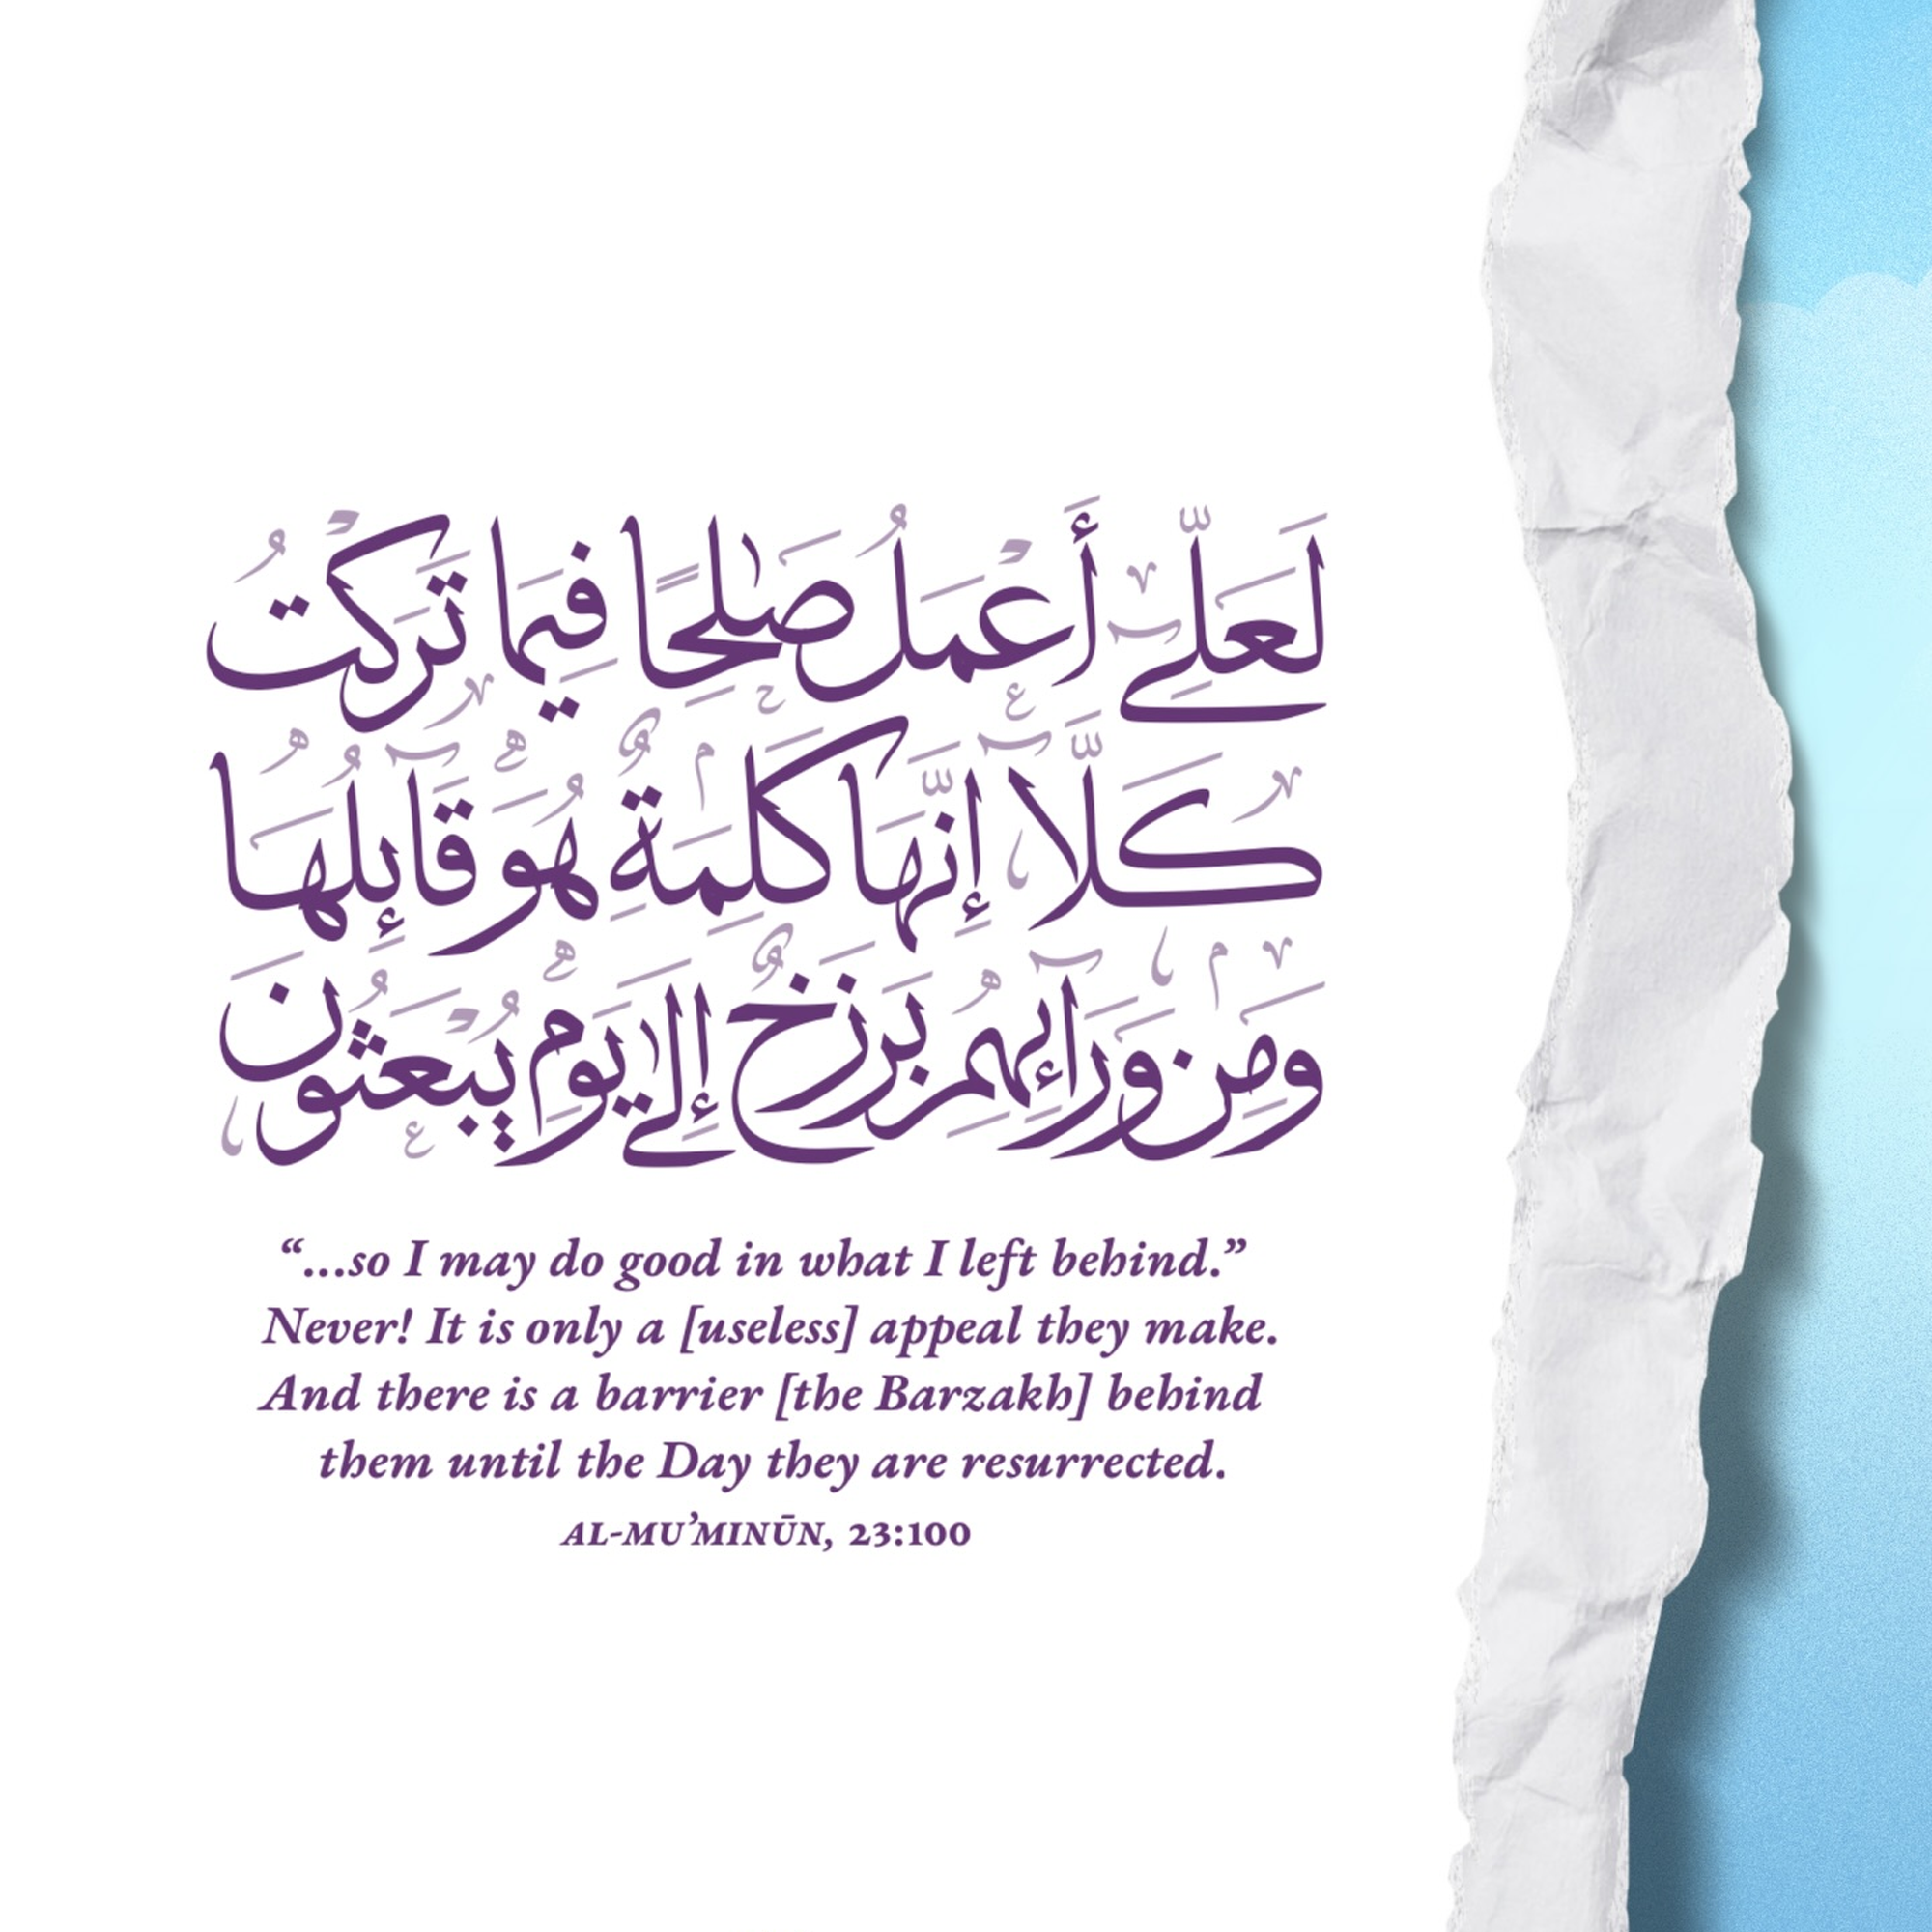 لَعَلِّىٓ أَعْمَلُ صَٰلِحًا فِيمَا تَرَكْتُ
كَلَّآ إِنَّهَا كَلِمَةٌ هُوَ قَآئِلُهَا
وَمِن وَرَآئِهِم بَرْزَخٌ إِلَىٰ يَوْمِ يُبْعَثُونَ
“...so I may do good in what I left behind.”
Never! It is only a [useless] appeal they make.
And there is a barrier [the Barzakh] behind
them until the Day they are resurrected.
AL-MU’MINŪN, 23:100